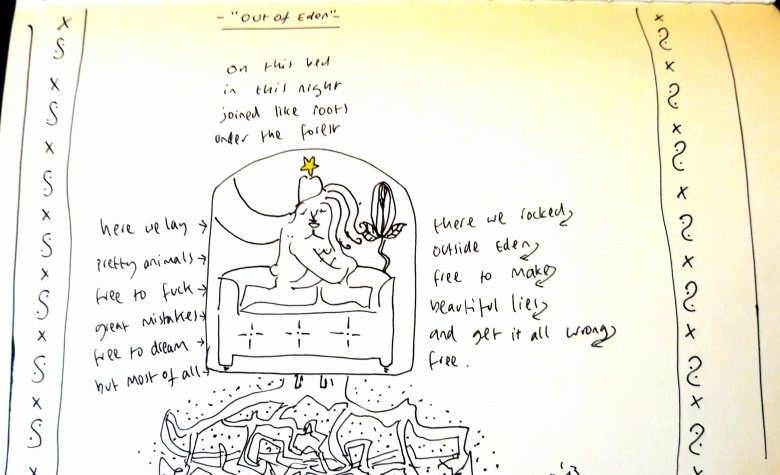 - "OUT OF EDEN" -
On this bed
in this night
joined like roots
under the forest
here we lay →
there we rocked
pretty animals →
outside Eden
free to fuck →
free to make
great mistakes →
beautiful lies
free to dream →
and get it all wrong
but most of all →
free.